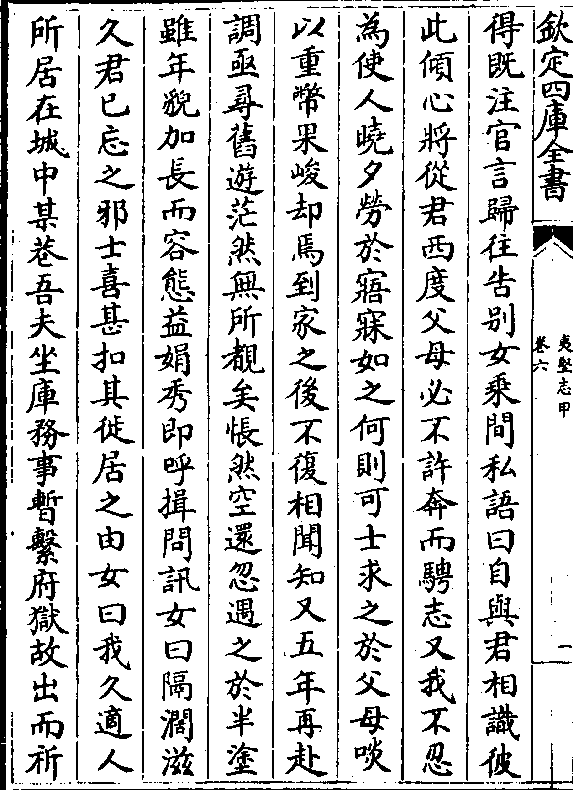 欽定四庫全書
夷堅志甲
卷六
一
得既注官言歸往告别女乘間私語曰自與君相識彼
此傾心將從君西度父母必不許奔而騁志又我不忍
為使人曉夕勞於寤寐如之何則可士求之於父母啖
以重幣果峻却焉到家之後不復相聞知又五年再赴
調亟尋舊遊茫然無所覩矣悵然空還忽遇之於半塗
雖年貌加長而容態益娟秀即呼揖問訊女曰隔濶滋
久君已忘之邪士喜甚扣其徙居之由女曰我久適人
所居在城中某巷吾夫坐庫務事暫繫府獄故出而祈